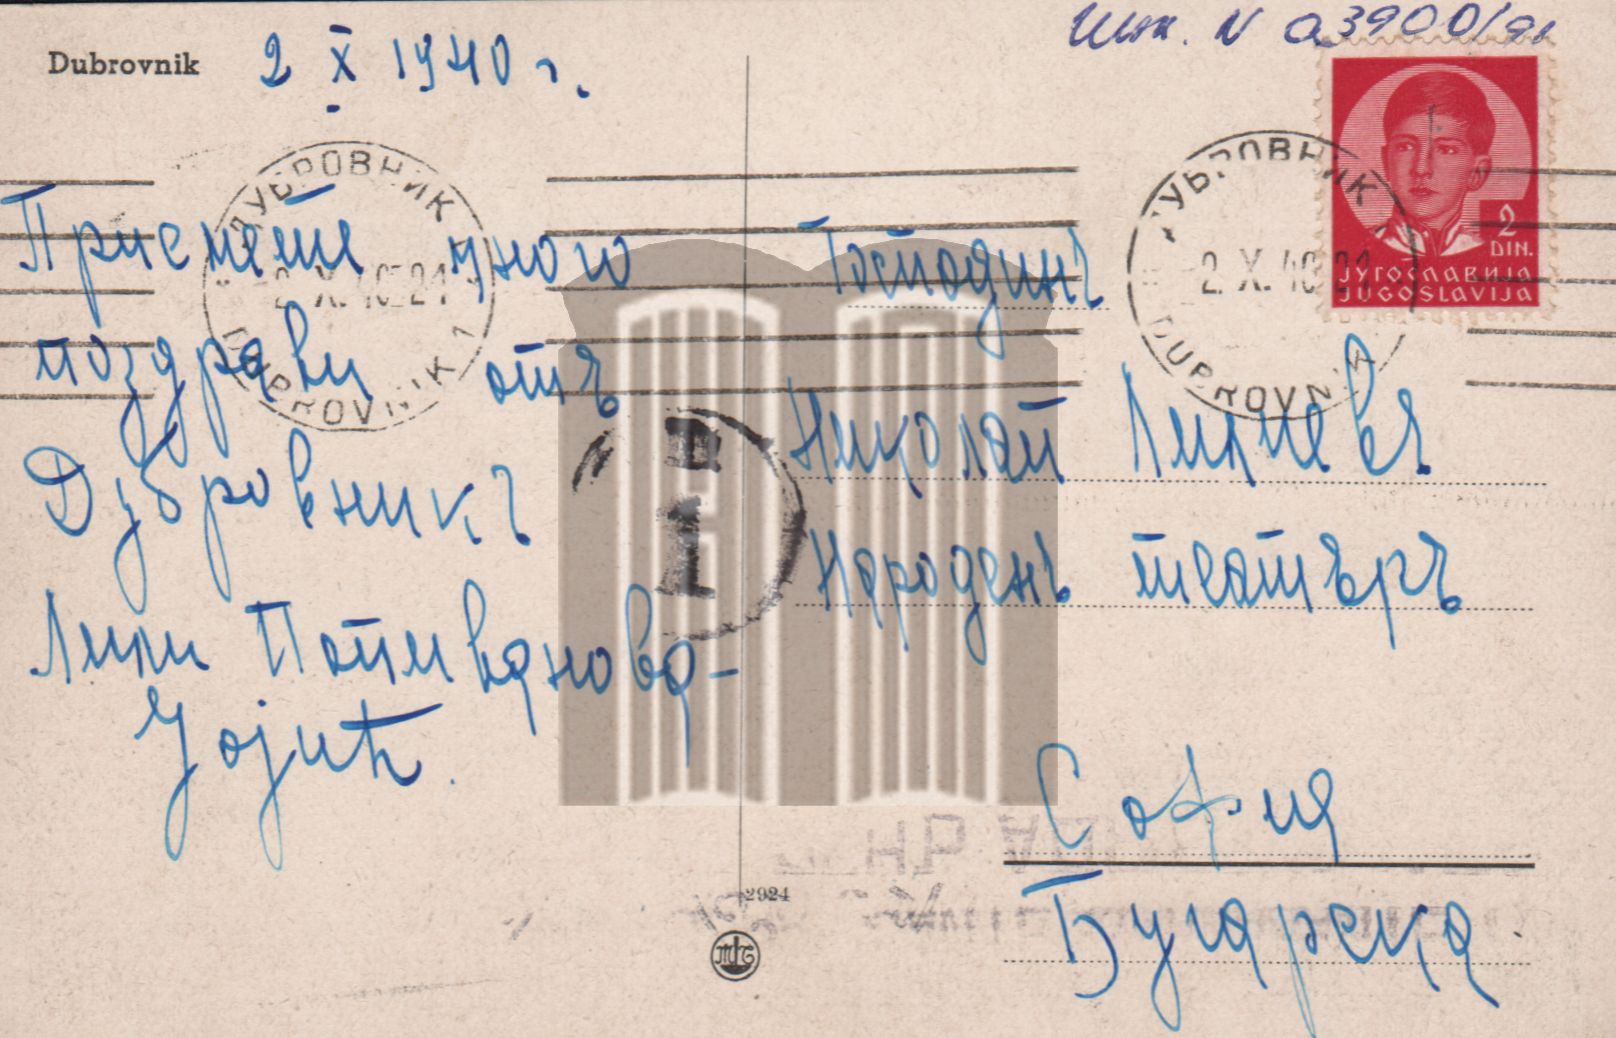 Dubrovnik
2 X 1940 г.
Приемете много
поздрави отъ
Дубровникъ
Лили Попиванова-
Јојић.
Инв. N а3900/91
Господинъ
Николай Лилиевъ
Народенъ театъръ
София
Бугарска.
2
DIN.
ЈУГОСЛАВИЈА
JUGOSLAVIJA
ДУБРОВНИК
2. X. 40 21
DUBROVNIK 1
ДУБРОВНИК
2. X. 40 21
DUBROVNIK
1
2924